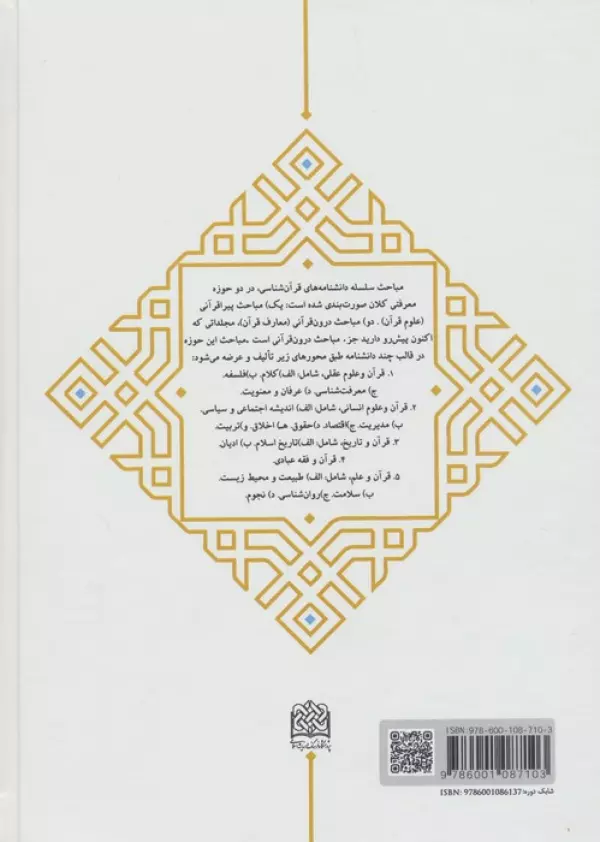 مباحث سلسله دانشنامه‌های قرآن‌شناسی، در دو حوزه
معرفتی کلان صورت‌بندی شده است: یک) مباحث پیراقرآنی
(علوم قرآن) . دو) مباحث درون‌قرآنی (معارف قرآن)، مجلداتی که
اکنون پیش‌رو دارید جزء مباحث درون‌قرآنی است .مباحث این حوزه
در قالب چند دانشنامه طبق محورهای زیر تألیف و عرضه می‌شود:
۱. قرآن وعلوم عقلی، شامل: الف)کلام. ب)فلسفه.
ج) معرفت‌شناسی. د) عرفان و معنویت.
۲. قرآن وعلوم انسانی، شامل: الف) اندیشه اجتماعی و سیاسی.
ب) مدیریت. ج)اقتصاد. د)حقوق. هـ) اخلاق. و)تربیت.
۳. قرآن و تاریخ، شامل: الف)تاریخ اسلام. ب) ادیان.
۴. قرآن و فقه عبادی.
۵. قرآن و علم، شامل: الف) طبیعت و محیط زیست.
ب) سلامت. ج)روان‌شناسی. د) نجوم.
ISBN: 978-600-108-710-3
9 786001 087103
شابک دوره: ISBN: 9786001086137